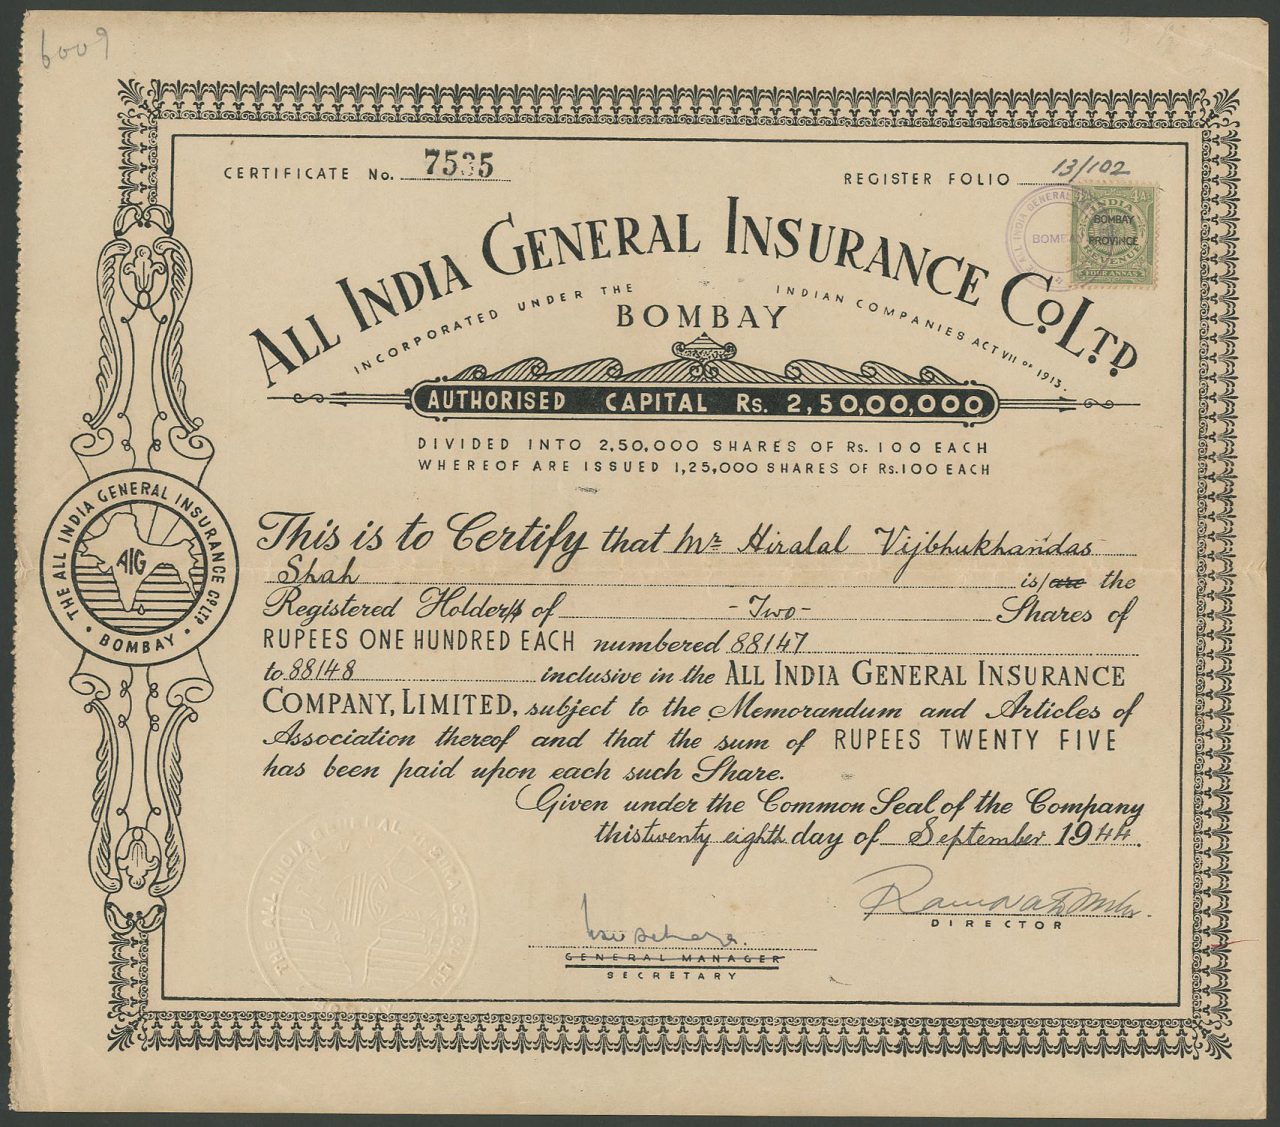 6009
CERTIFICATE No. 7535
REGISTER FOLIO 13/102
ALL INDIA GENERAL INSURANCE Co. LTD.
INCORPORATED UNDER THE INDIAN COMPANIES ACT VII OF 1913.
BOMBAY
INDIA
BOMBAY
PROVINCE
REVENUE
FOUR ANNAS
ALL INDIA GENERAL
BOMBAY
AUTHORISED CAPITAL Rs. 2,50,00,000
DIVIDED INTO 2,50,000 SHARES OF Rs. 100 EACH
WHEREOF ARE ISSUED 1,25,000 SHARES OF Rs. 100 EACH
THE ALL INDIA GENERAL INSURANCE CO LTD
AIG
• BOMBAY •
This is to Certify that Mr Hiralal Vijbhukhandas
Shah is/are the
Registered Holder/s of - Two - Shares of
RUPEES ONE HUNDRED EACH numbered 88147
to 88148 inclusive in the ALL INDIA GENERAL INSURANCE
COMPANY, LIMITED, subject to the Memorandum and Articles of
Association thereof and that the sum of RUPEES TWENTY FIVE
has been paid upon each such Share.
Given under the Common Seal of the Company
this twenty eighth day of September 1944.
DIRECTOR
GENERAL MANAGER
SECRETARY
THE ALL INDIA GENERAL INSURANCE CO LTD